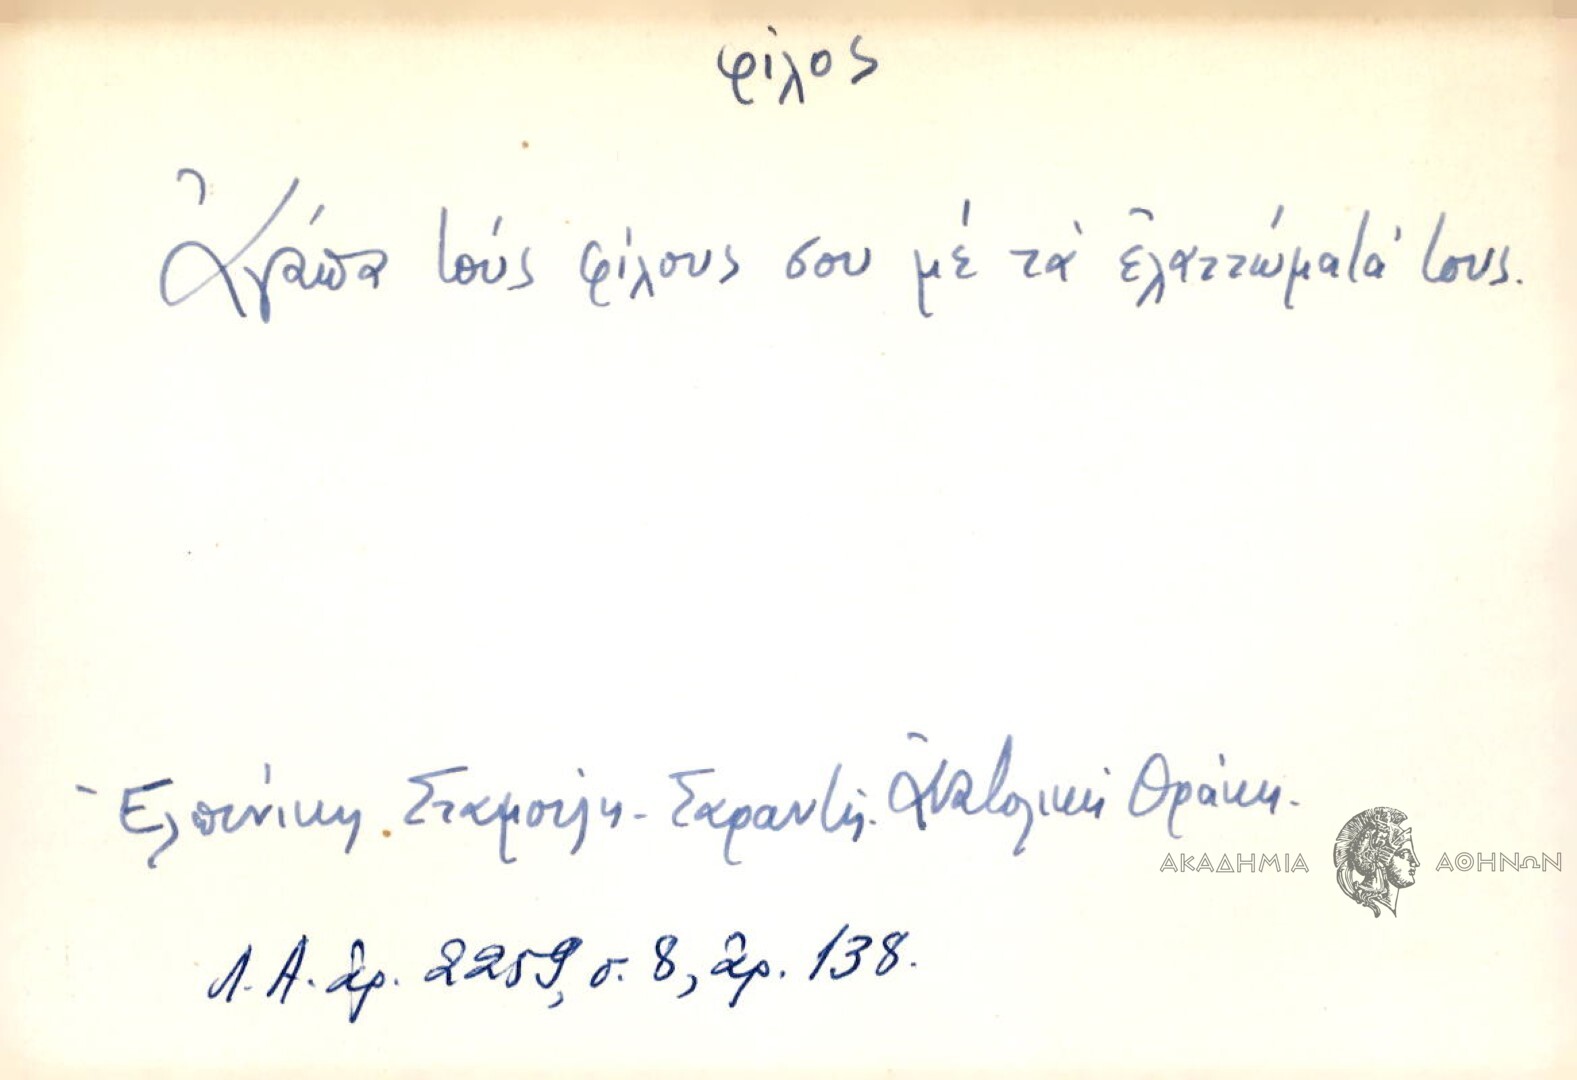 φίλος
Ἀγάπα τούς φίλους σου μέ τά ἐλαττώματά τους.
Ἐλπινίκη Σταμούλη-Σαραντῆ. Ἀνατολική Θράκη.
ΑΚΑΔΗΜΙΑ ΑΘΗΝΩΝ
Λ.Α. ἀρ. 2259, σ. 8, ἀρ. 138.